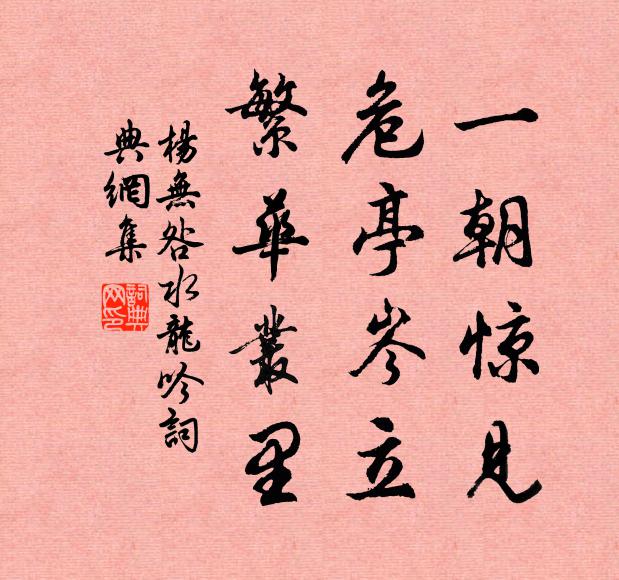 一朝惊见
危亭岑立
繁華叢里
楊無咎水龍吟詞
典網集
詞典网印